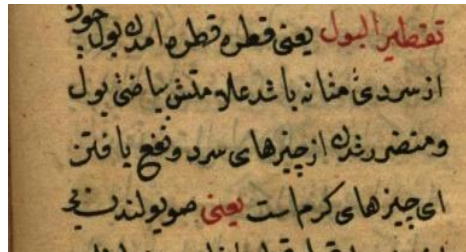 تقطیر البول یعنی قطره قطره امدن بول چون
از سردئ مثانه باشد علامتش بیاضئ بول
و متضرر شدن از چیزهای سرد و نفع یافتن
ای چیزهای کرم است یعنی صویولندن